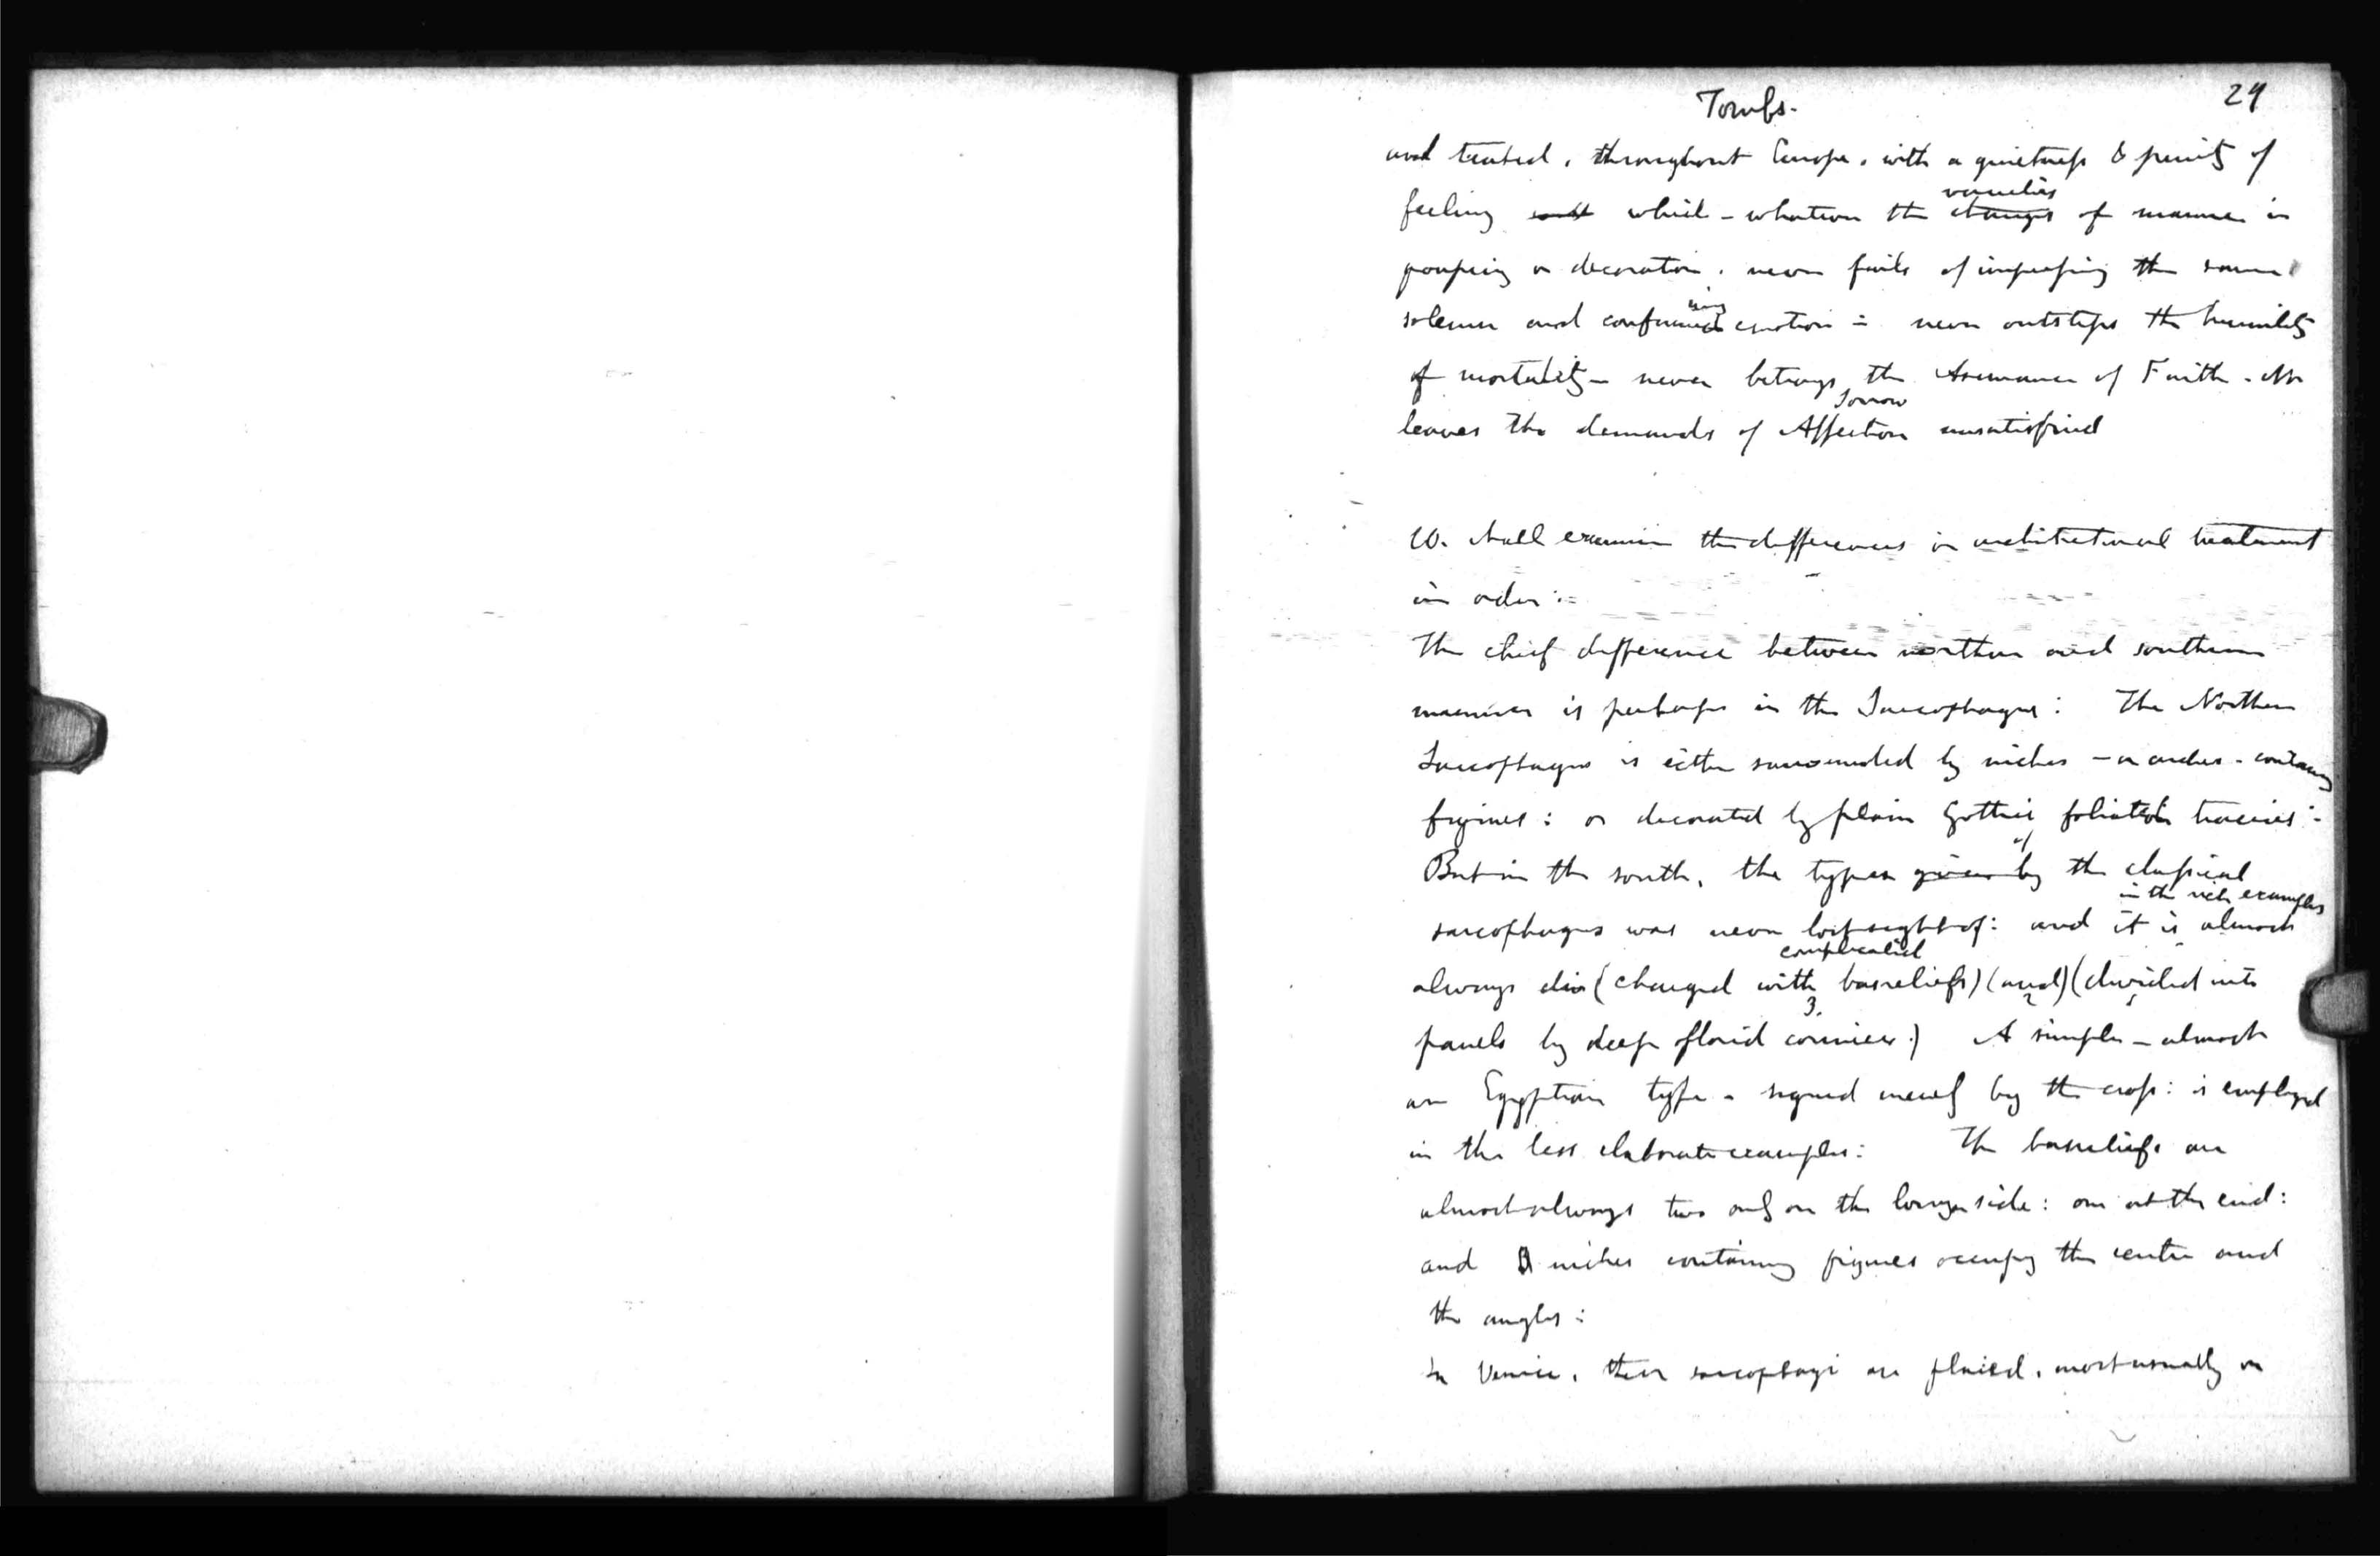 Tombs. 29
and treated, throughout Europe, with a quietness & purity of
varieties
feeling which - whatever the changes of manner in
grouping or decoration, never fails of impressing the same
ing
solemn and confirmed emotion = never outsteps the humility
of mortality - never betrays the Assurance of Faith - Nor
sorrow
leaves the demands of Affection unsatisfied
We shall examine the differences in architectural treatment
in order :=
The chief difference between northern and southern
manner is perhaps in the Sarcophagus : The Northern
Sarcophagus is either surrounded by niches - or arches - containing
figures : or decorated by plain Gothic foliated traceries :-
of
But in the south, the types given by the classical
in the rich examples
sarcophagus was never lost sight of : and it is almost
complicated
always div (charged with basreliefs) (and) (divided into
3. 2 1
panels by deep florid cornices.) A simple - almost
an Egyptian type - signed merely by the cross : is employed
in the less elaborate examples : The basreliefs are
almost always two only on the longer side : one at the end :
and 3 niches containing figures occupy the centre and
the angles :
In Venice, these sarcophagi are placed, most usually on